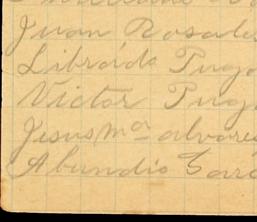 Juan Rosales
Librado Puga
Victor Puga
Jesus Ma alvarez
Abundio Garc